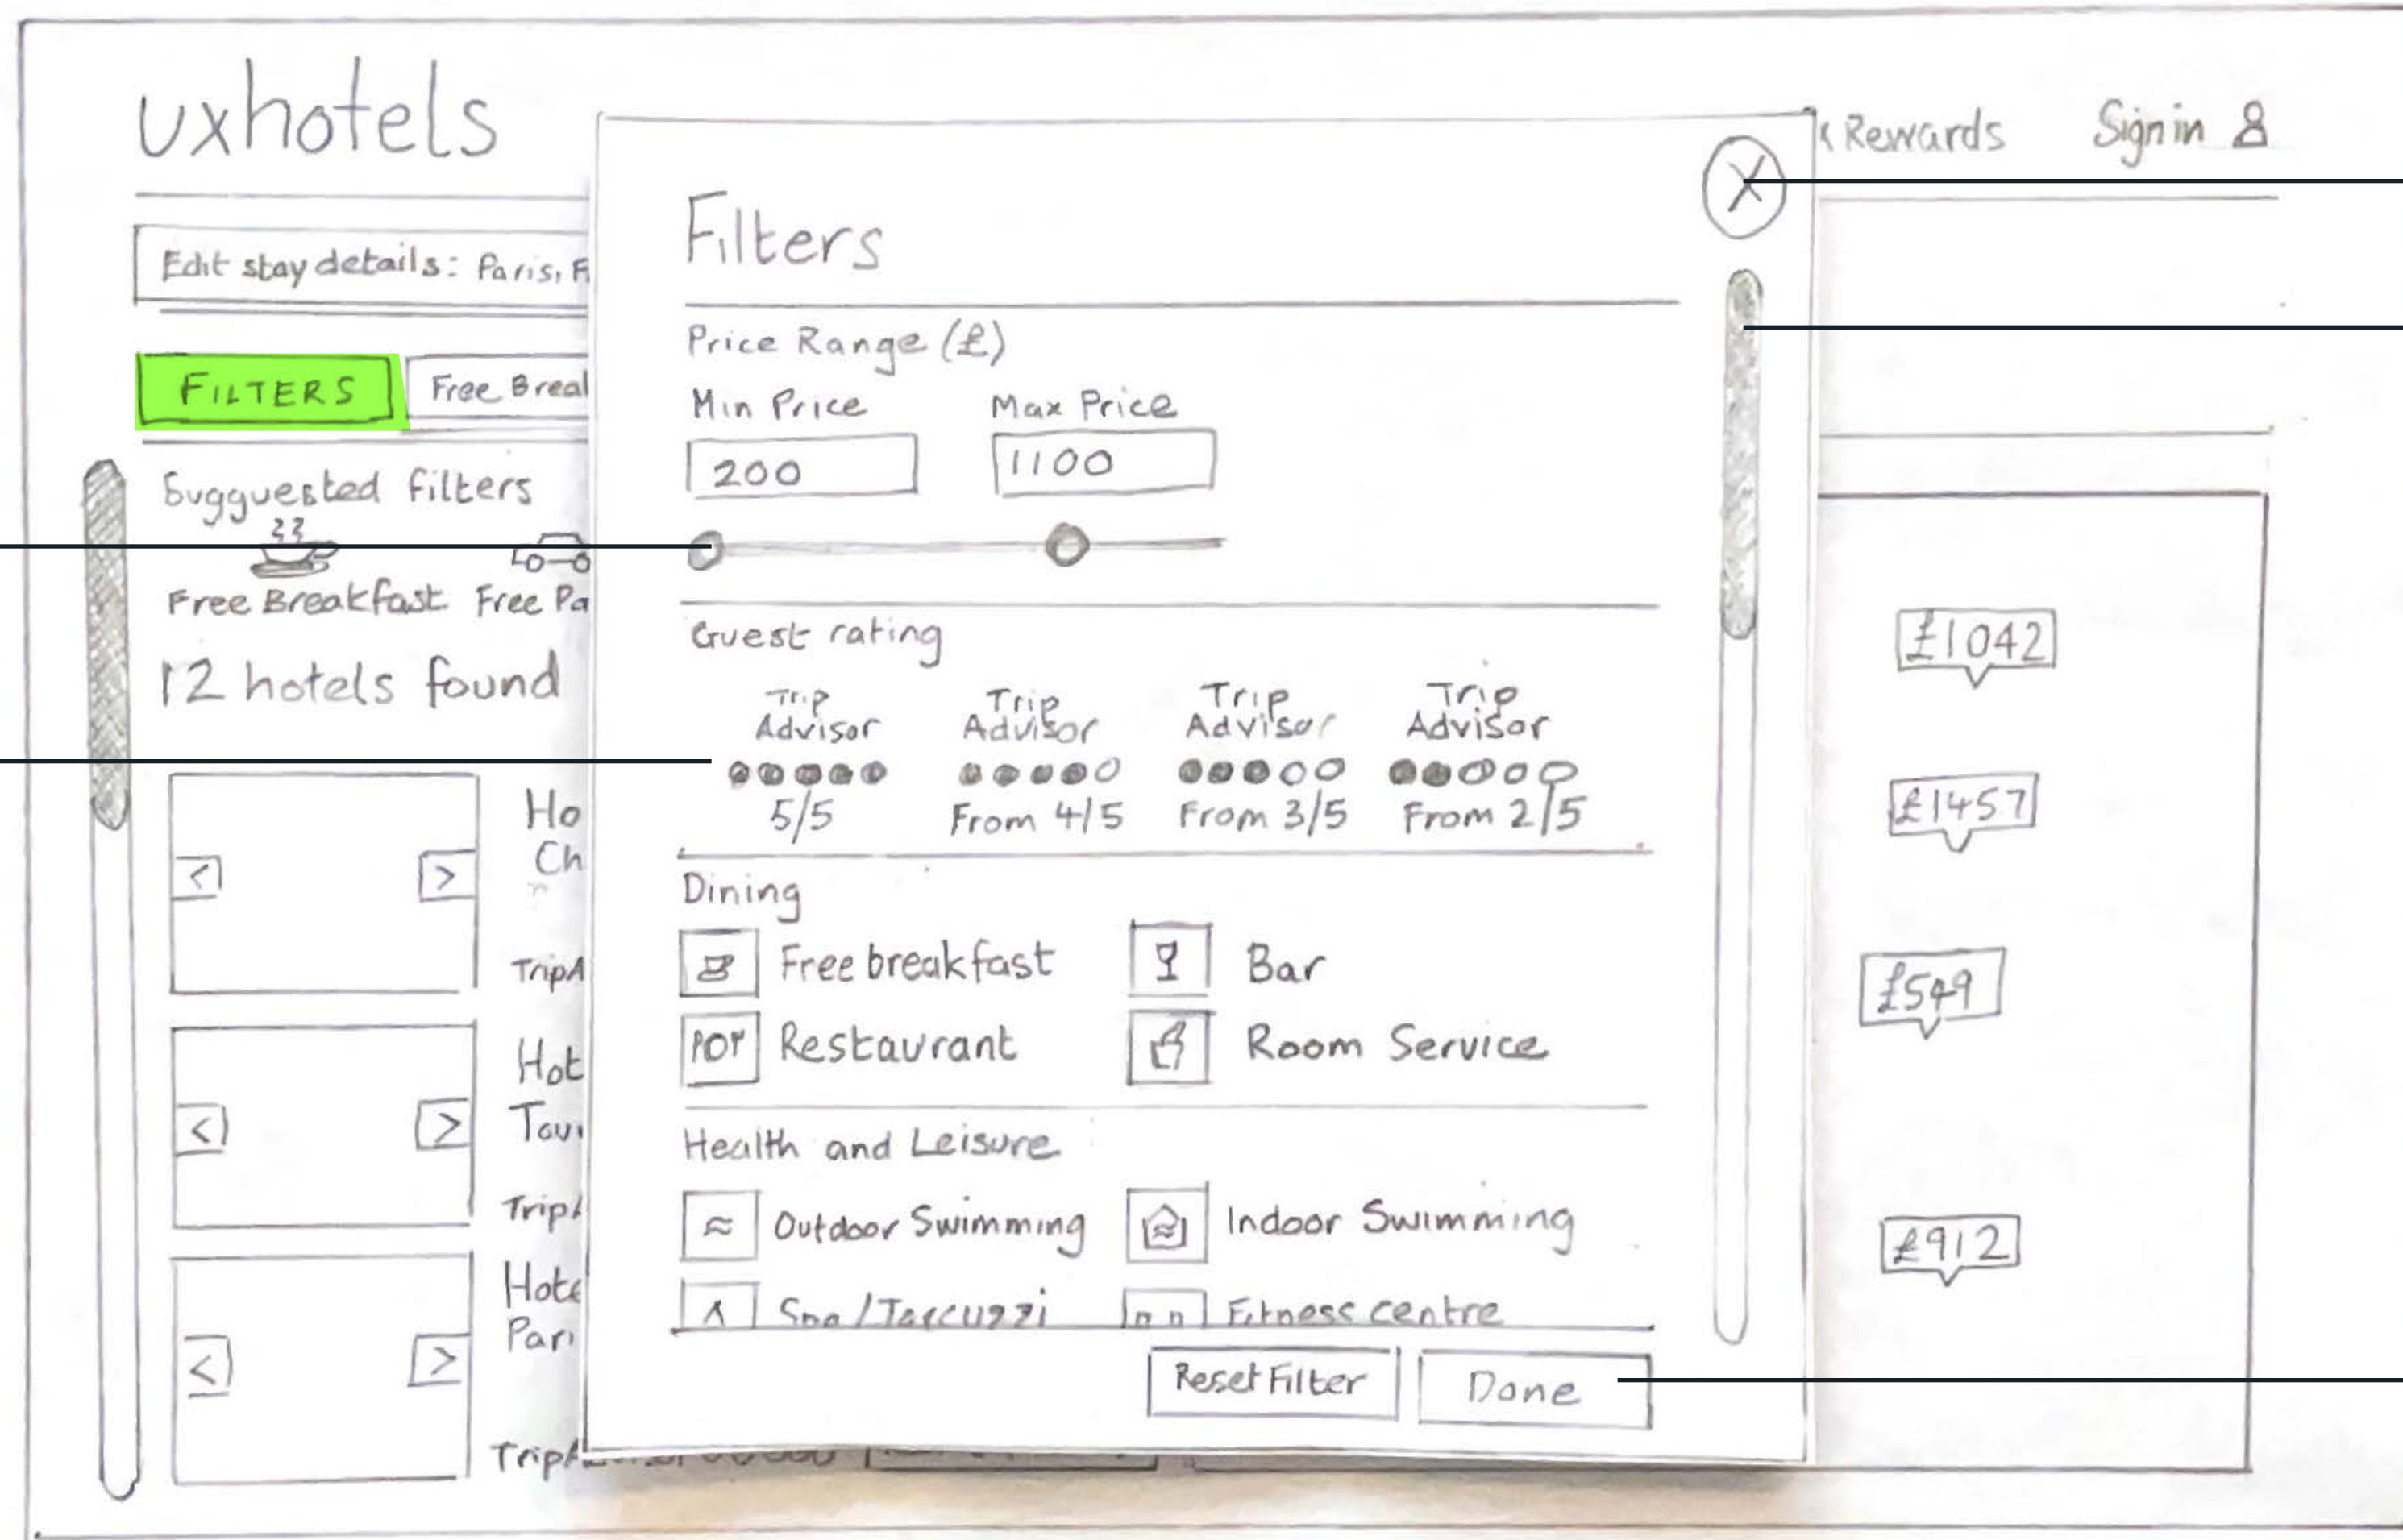 uxhotels
Rewards
Sign in
Edit stay details: Paris, F
FILTERS
Free Brea
Sugguested filters
Free Breakfast Free Pa
12 hotels found
Ho
Ch
TripA
Hot
Tou
Trip
Hote
Pari
Trip
X
Filters
Price Range (£)
Min Price Max Price
200 1100
Guest rating
Trip Advisor
5/5
Trip Advisor
From 4/5
Trip Advisor
From 3/5
Trip Advisor
From 2/5
Dining
Free breakfast Bar
Restaurant Room Service
Health and Leisure
Outdoor Swimming Indoor Swimming
Spa / Fitness centre
Reset Filter Done
£1042
£1457
£549
£912